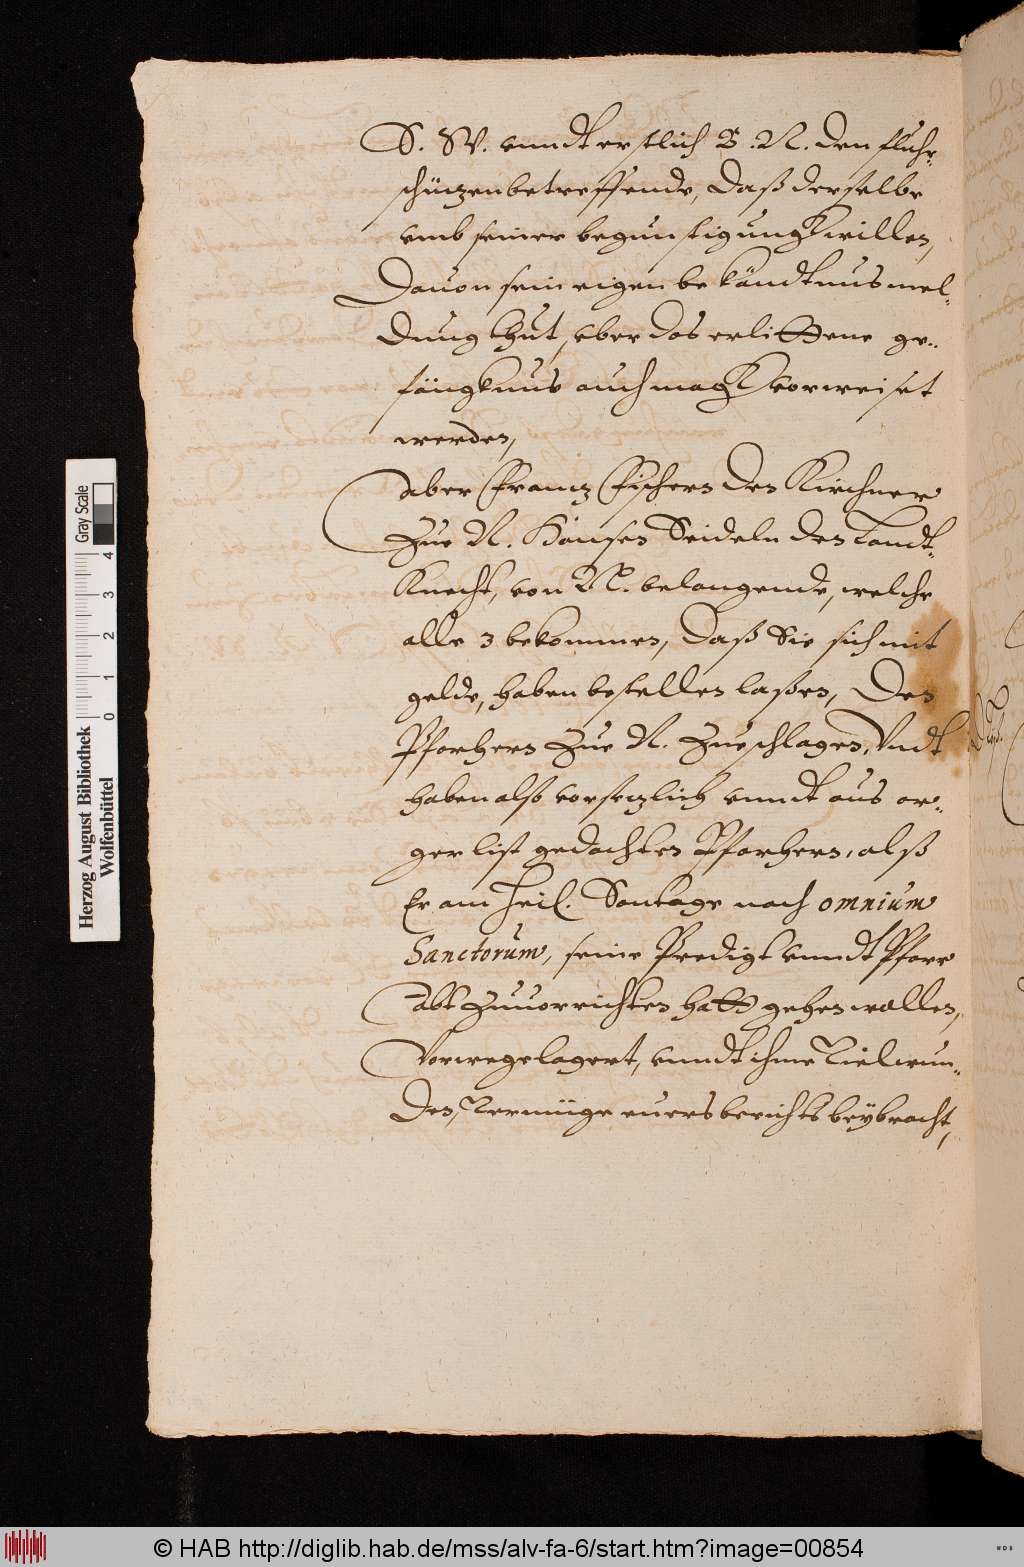 S. W. vnndt erstlich B. N. den fluhr-
schützen betreffende, Daß derselbe
vmb seiner begunstigungk willen,
Dauon sein eigen bekändtnus mel-
dung thut, vber das erlittene ge-
fängknus auch magk vorweiset
werden,
aber Frantz Fischern den Kirchner
Zue N. Hansen Seideln den Landt-
Knecht, von N. belangende, welche
alle 3 bekommen, Daß Sie sich mit
gelde, haben bestellen laßen, Den
Pfarhern Zue N. Zueschlagen, Vndt
haben alß vorsetzlich vnndt aus ar-
ger list gedachten Pfarhern, alß
Er am heil. Sontage nach omnium
Sanctorum, seine Predigt vnndt Pfarr
abt Zuuorrichten hatt gehen wollen,
Vorwegelagert, vnndt ihme Viel wun-
den, Vermüge euers berichts beÿbracht,
Herzog August Bibliothek
Wolfenbüttel
0 1 2 3 4
Gray Scale
© HAB http://diglib.hab.de/mss/alv-fa-6/start.htm?image=00854
WDB